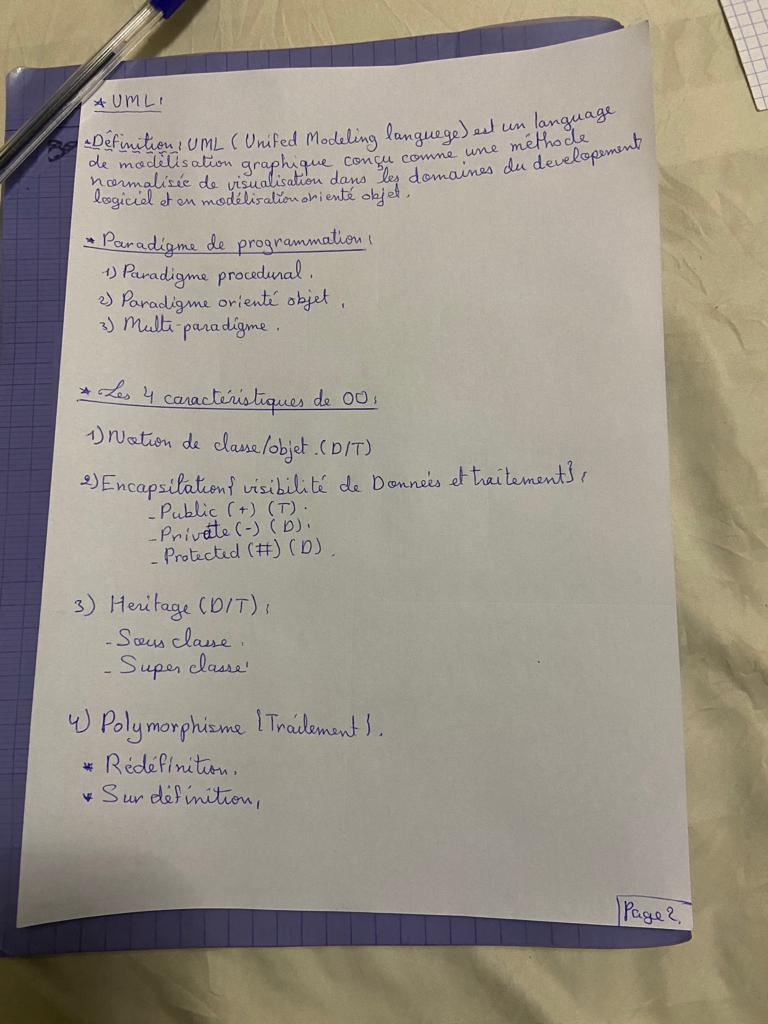 * UML:
- Définition: UML ( Unifed Modeling languege) est un language
de modélisation graphique conçu comme une méthode
normalisée de visualisation dans les domaines du developement
logiciel et en modélisation orienté objet.
* Paradigme de programmation:
1) Paradigme procedural.
2) Paradigme orienté objet.
3) Multi-paradigme.
* Les 4 caractéristiques de OO:
1) Notion de classe/objet. (D/T)
2) Encapsilation{ visibilité de Données et traitement}:
- Public (+) (T).
- Private (-) (D).
- Protected (#) (D).
3) Heritage (D/T):
- Sous classe.
- Super classe
4) Polymorphisme {Traitement}.
* Rédéfinition.
* Sur définition.
Page 2.